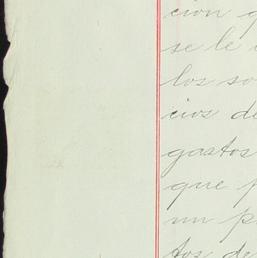 cion q
se le
los so
cios de
gastos
que p
un p
tos de